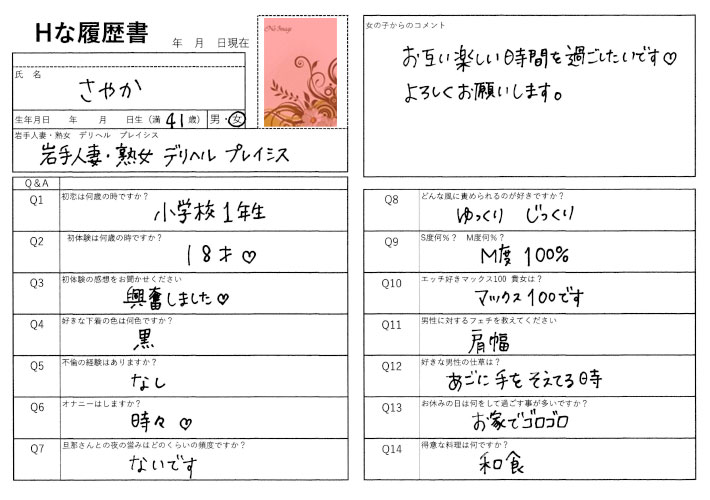 Hな履歴書
年 月 日現在
No Image
氏 名
さやか
生年月日 年 月 日生（満 41 歳） 男・女
岩手人妻・熟女 デリヘル プレイシス
岩手人妻・熟女 デリヘル プレイシス
女の子からのコメント
お互い楽しい時間を過ごしたいです♡
よろしくお願いします。
Q&A
Q1 初恋は何歳の時ですか？
小学校1年生
Q2 初体験は何歳の時ですか？
18才♡
Q3 初体験の感想をお聞かせください
興奮しました♡
Q4 好きな下着の色は何色ですか？
黒
Q5 不倫の経験はありますか？
なし
Q6 オナニーはしますか？
時々 ♡
Q7 旦那さんとの夜の営みはどのくらいの頻度ですか？
ないです
Q8 どんな風に責められるのが好きですか？
ゆっくり じっくり
Q9 S度何％？ M度何％？
M度 100%
Q10 エッチ好きマックス100 貴女は？
マックス100です
Q11 男性に対するフェチを教えてください
肩幅
Q12 好きな男性の仕草は？
あごに手をそえてる時
Q13 お休みの日は何をして過ごす事が多いですか？
お家でゴロゴロ
Q14 得意な料理は何ですか？
和食